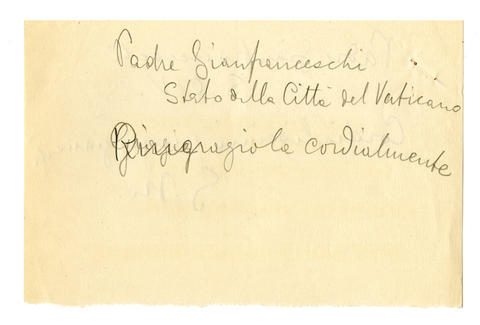 Padre Gianfranceschi
Stato della Città del Vaticano
cordialmente